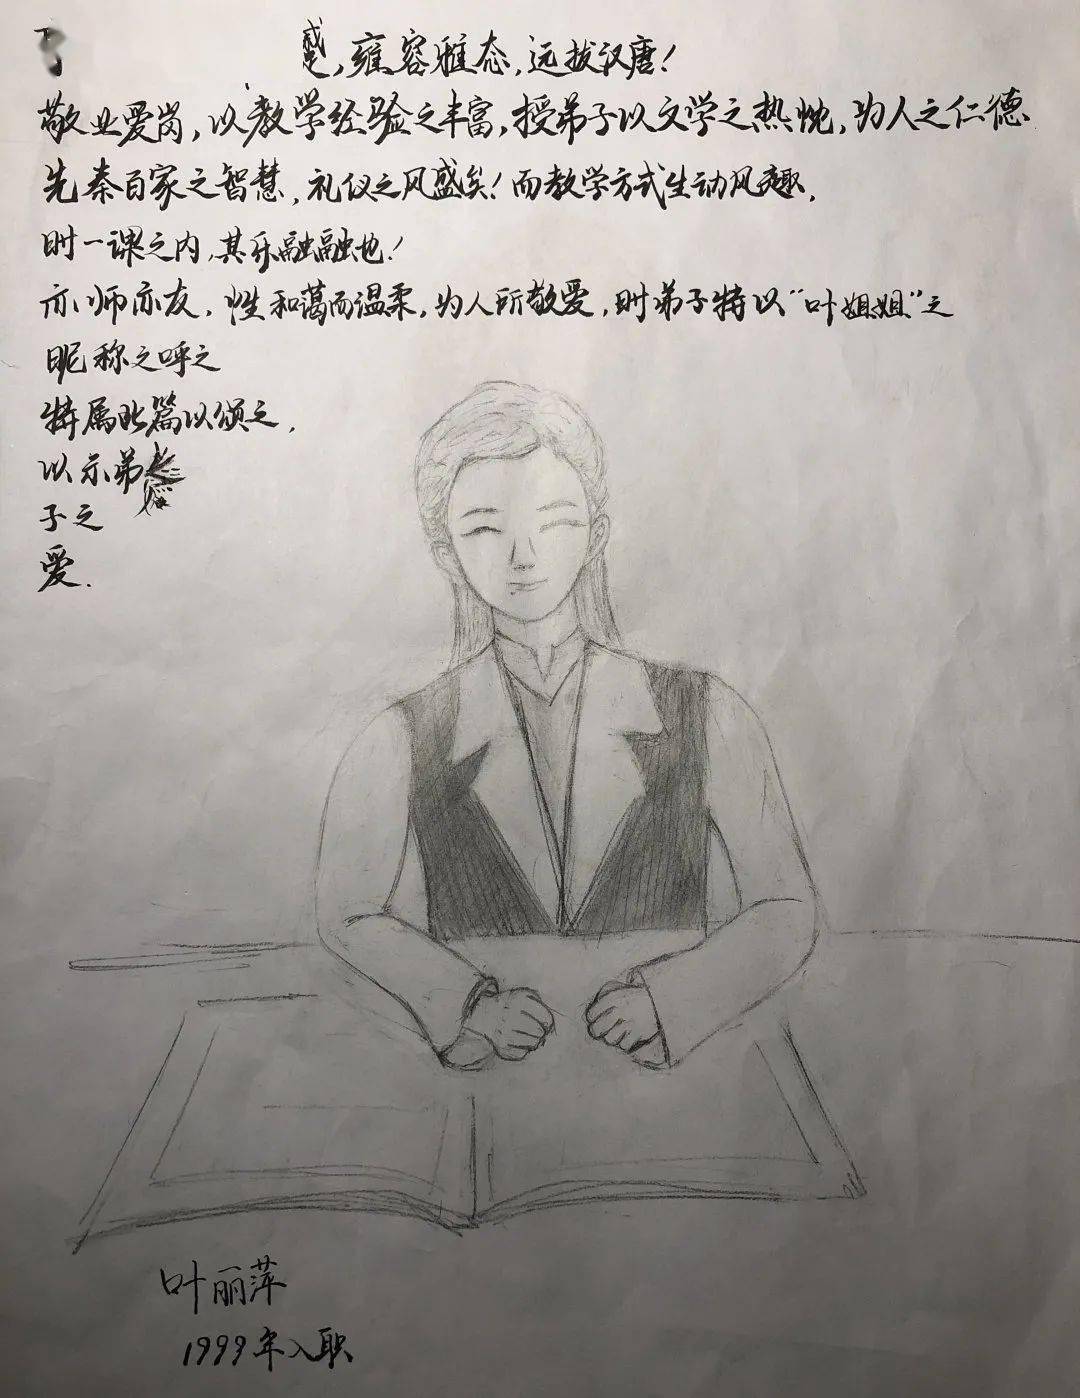 ，雍容雅态，远拔汉唐！
敬业爱岗，以教学经验之丰富，授弟子以文学之热忱，为人之仁德
先秦百家之智慧，礼仪之风盛矣！而教学方式生动风趣，
时一课之内，其乐融融也！
亦师亦友，性和蔼而温柔，为人所敬爱，时弟子特以“叶姐姐”之
昵称之呼之
特属此篇以颂之，
以示弟
子之
爱.
叶丽萍
1999年入职